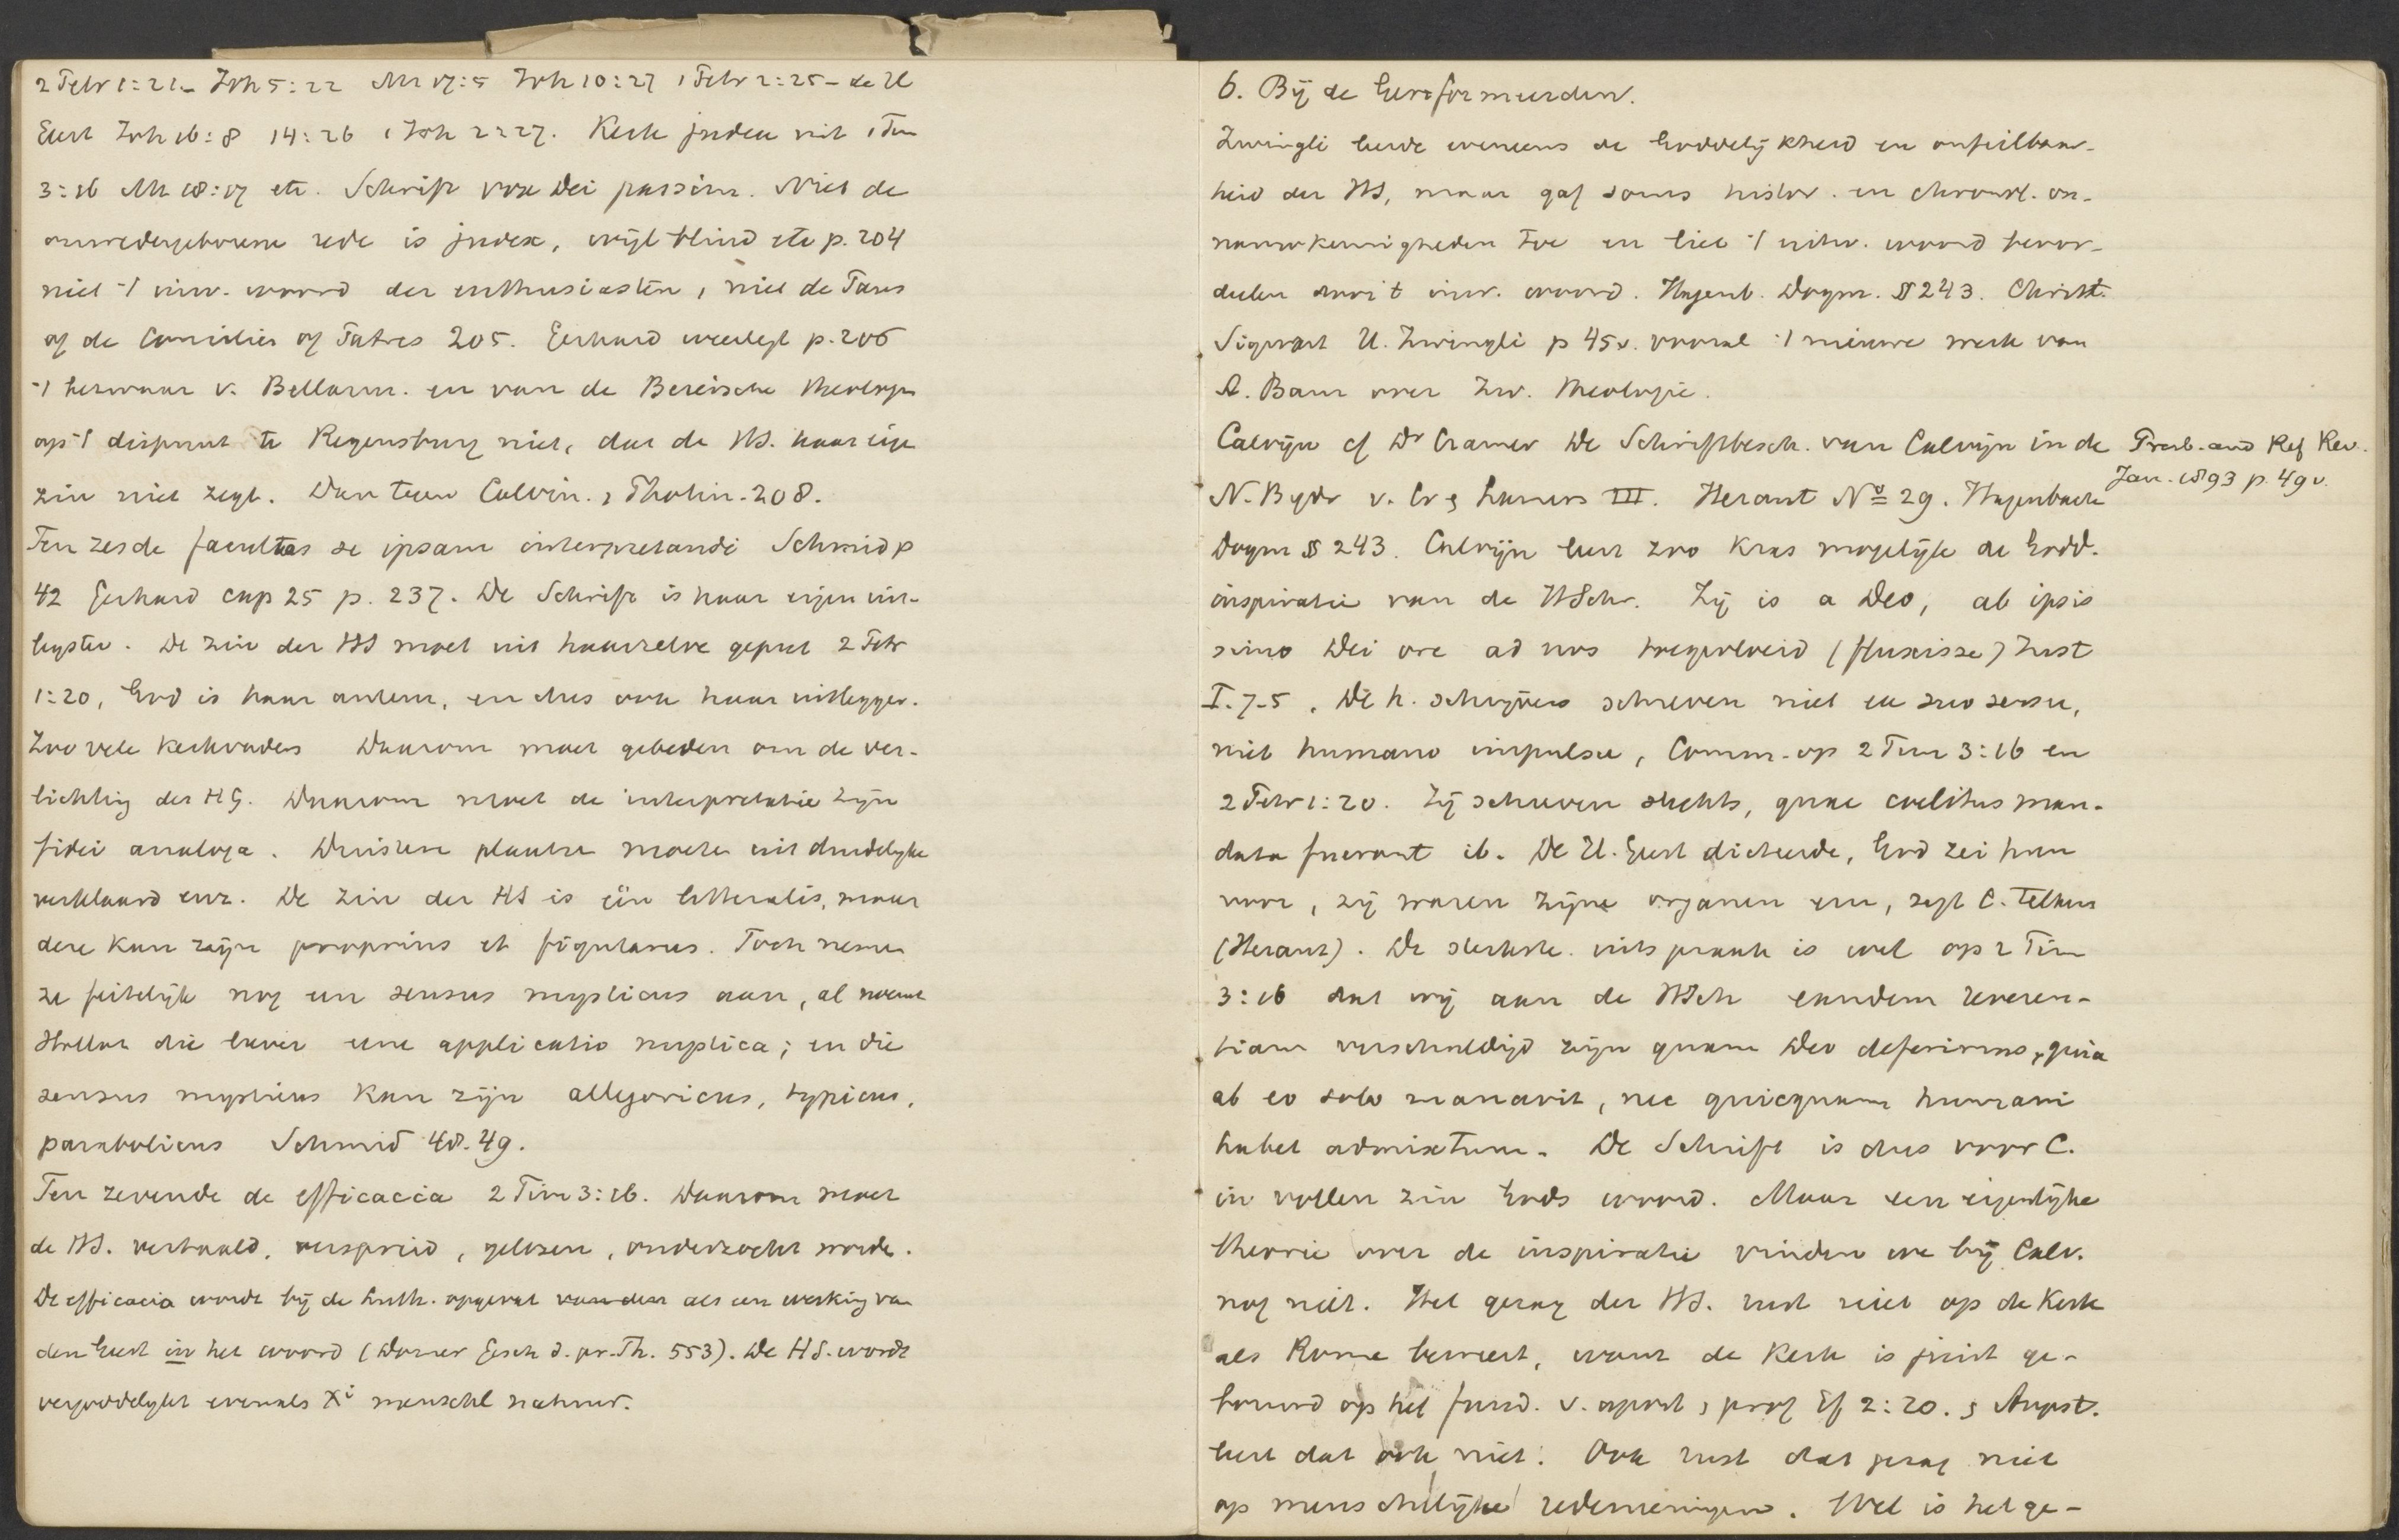 2 Petr 1:21. Joh 5:22 Mt 17:5 Joh 10:27 1 Petr 2:25 - de H
Geest Joh 16:8 14:26 1 Joh 2:27. Kerk judex niet 1 Tim
3:16 Mt 18:17 etc. Schrift vox Dei passim. Niet de
onwedergeborene rede is judex, wijl blind etc p. 204
niet 't inw. woord der enthusiasten, niet de Paus
of de Conciliën of Patres 205. Gerhard weerlegt p. 206
't bezwaar v. Bellarm. en van de Beiersche theologen
op 't dispuut te Regensburg niet, dat de HS. haar eigen
zin niet zegt. Dan tegen Calvin. , Photin. 208.
Ten zesde facultas se ipsam interpretandi Schmid p
42 Gerhard cap 25 p. 237. De Schrift is haar eigen uit-
legster. De zin der HS moet uit haarzelve geput 2 Petr
1:20, God is haar auteur, en dus ook haar uitlegger.
Zoo vele kerkvaders Daarom moet gebeden om de ver-
lichting des HG. Daarom moet de interpretatie zijn
fidei analoga. Duistere plaatsen moeten uit duidelijke
verklaard enz. De zin der HS is één litteralis, maar
deze kan zijn proprius et figuratus. Toch nemen
ze feitelijk nog een sensus mysticus aan, al noemt
Hollaz die liever eene applicatio mystica; en die
sensus mysticus kan zijn allegoricus, typicus,
parabolicus Schmid 48-49.
Ten zevende de efficacia 2 Tim 3:16. Daarom moet
de HS. vertaald, verspreid, gelezen, onderzocht worde.
De efficacia wordt bij de Luth. opgevat van den als een werking van
den Geest in het woord (Dorner Gesch d. pr. Th. 553). De HS. wordt
vergoddelijkt evenals Xi menschel natuur.
6. Bij de Gereformeerden.
Zwingli leerde eveneens de Goddelijkheid en onfeilbaar-
heid der HS, maar gaf soms histor. en chronol. on-
nauwkeurigheden toe en liet 't uitw. woord beoor-
deelen door 't inw. woord. Hagenb. Dogm. § 243. Christ.
Sigwart U. Zwingli p 45v. vooral 't nieuwe werk van
A. Baur over Zw. theologie.
Calvijn cf Dr Cramer De Schriftbesch. van Calvijn in de Presb. and Ref Rev.
Jan. 1893 p. 49v.
N. Bijdr v. Cr & Lamers III. Heraut No 29. Hagenbach
Dogm § 243. Calvijn leert zoo kras mogelijk de Godd.
inspiratie van de HSchr. Zij is a Deo, ab ipsis
simo Dei ore ad nos toegevloeid (fluxisse) Inst
I. 7-5. De h. schrijvers schreven niet ex suo sensu,
niet humano impulsu, Comm. op 2 Tim 3:16 en
2 Petr 1:20. Zij schreven slechts, quae coelitus man-
data fuerant ib. De H. Geest dicteerde, God zei hun
voor, zij waren zijne organen enz, zegt C. telkens
(Heraut). De sterkste uitspraak is wel op 2 Tim
3:16 dat wij aan de HSch eandem reveren-
tiam verschuldigd zijn quam Deo deferimus, quia
ab eo solo manavit, nec quicquam humani
habet admixtum. De Schrift is dus voor C.
in vollen zin Gods woord. Maar een eigenlijke
theorie over de inspiratie vinden we bij Calv.
nog niet. Het gezag der HS. rust niet op de Kerk
als Rome beweert, want de Kerk is juist ge-
bouwd op het fund. v. apost , prof Ef 2:20. , August.
leert dat ook niet. Ook rust dat gezag niet
op menschelijke redeneeringen. Wel is het ge-